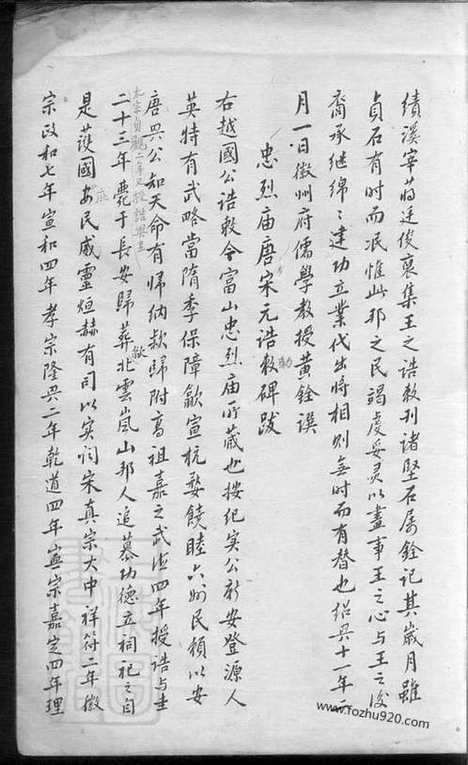 績溪宰蒋廷俊裒集王之诰敕刊诸堅石属銓記其嵗月雖
貞石有时而泯惟此邦之民竭虔妥灵以盡事王之心与王之後
裔承继綿〻建功立業代出將相则無时而有替也绍兴十一年
月一日徽州府儒學教授黄銓譔
忠烈庙唐宋元诰敕碑跋
右越國公诰敕今富山忠烈庙所蔵也按纪实公新安登源人
英特有武略當隋季保障歙宣杭婺饒睦六州民頼以安
唐兴公知天命有归纳款归附高祖嘉之武德四年授诰与
二十三年薨于長安歸葬北雲嵐山邦人追慕功德立祠祀之自
是護國安民威靈烜赫有司以实闻宋真宗大中祥符二年徽
宗政和七年宣和四年孝宗隆兴二年乾道四年寧宗嘉定四年理
www.fozhu920.com